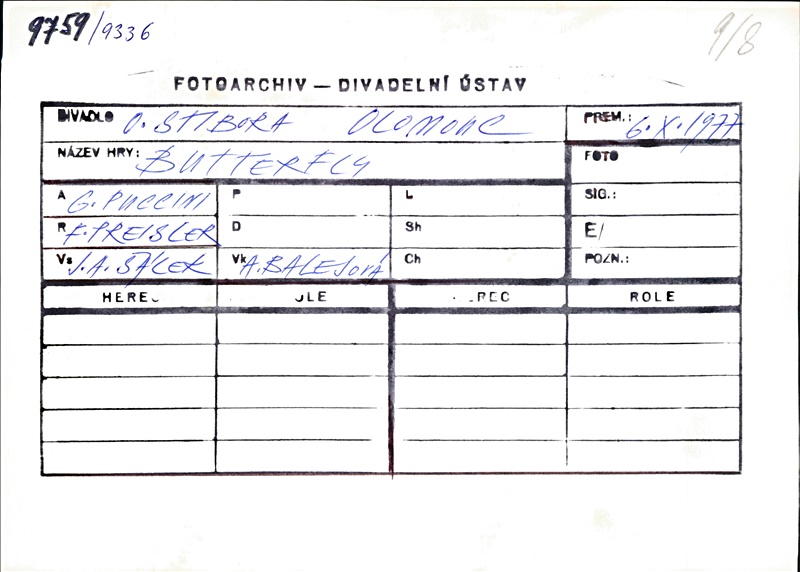 9759/9336
9/8
FOTOARCHIV — DIVADELNÍ ÚSTAV
DIVADLO O. STIBORA OLOMOUC
PREM.: 6.X.1977
NÁZEV HRY: BUTTERFLY
FOTO
A G. PUCCINI P L SIG.:
R F. PREISLER D Sh E/
Vs J.A. ŠÁLEK Vk A. BALEJOVÁ Ch POZN.:
HEREC ROLE HEREC ROLE